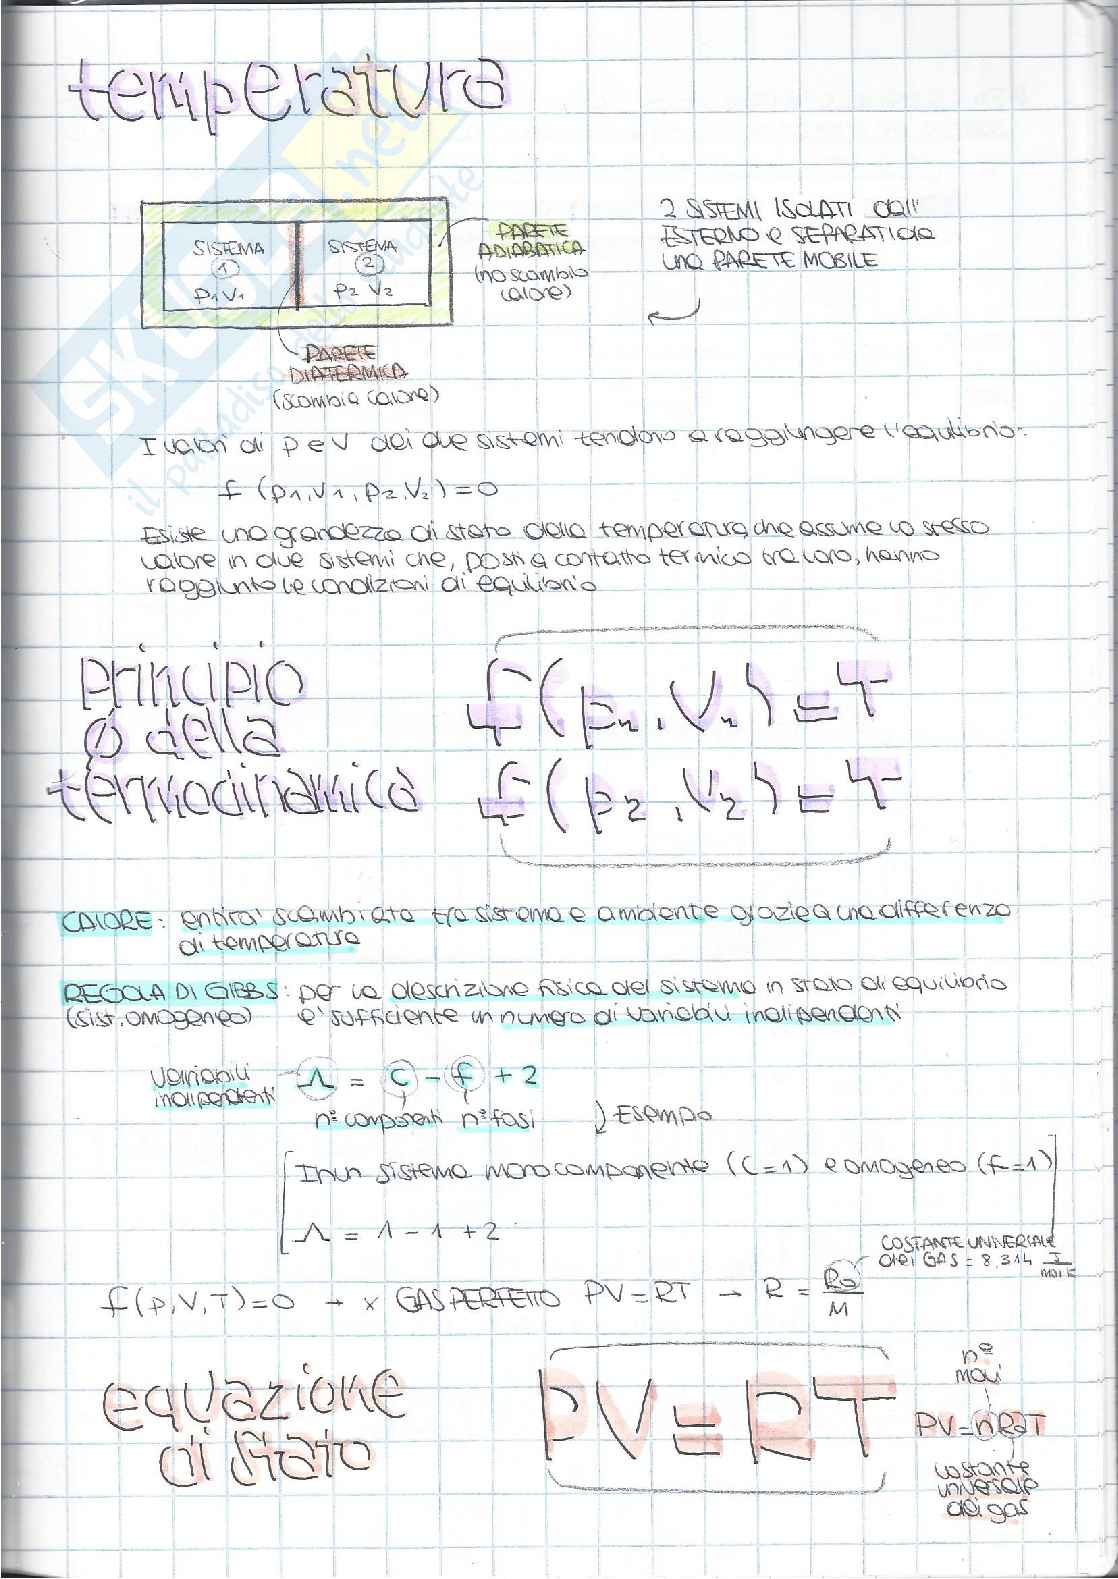 temperatura
SISTEMA
1
P1 V1
SISTEMA
2
P2 V2
PARETE
ADIABATICA
(no scambio
calore)
PARETE
DIATERMICA
(scambia calore)
2 SISTEMI ISOLATI dall'
ESTERNO e SEPARATI da
una PARETE MOBILE
I valori di p e V dei due sistemi tendono a raggiungere l'equilibrio:
f (p1, V1, p2, V2) = 0
Esiste una grandezza di stato detta temperatura, che assume lo stesso
valore in due sistemi che, posti a contatto termico tra loro, hanno
raggiunto le condizioni di equilibrio
principio
0 della
termodinamica
f (p1, V1) = T
f (p2, V2) = T
CALORE: entita' scambiata tra sistema e ambiente grazie a una differenza
di temperatura
REGOLA DI GIBBS: per la descrizione fisica del sistema in stato di equilibrio
(sist. omogeneo) e' sufficiente un numero di variabili indipendenti
variabili
indipendenti
Λ = C - f + 2
n° componenti n° fasi
Esempio
In un sistema monocomponente (C=1) e omogeneo (f=1)
Λ = 1 - 1 + 2
COSTANTE UNIVERSALE
dei GAS = 8,314 J/mol K
f(p,V,T)=0 → x GAS PERFETTO PV=RT → R = R0/M
equazione
di stato
PV=RT
n°
moli
PV=nR0T
costante
universale
dei gas
SKUOLA.net
il paradiso dello studente